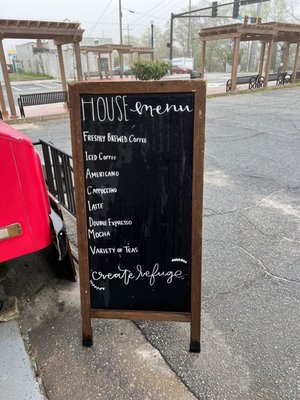 HOUSE menu
FRESHLY BREWED COFFEE
ICED COFFEE
AMERICANO
CAPPUCCINO
LATTE
DOUBLE ESPRESSO
MOCHA
VARIETY OF TEAS
create refuge